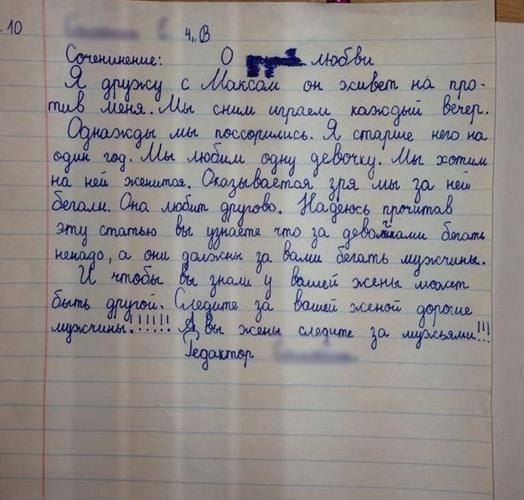 10
4„В"
Сочининение: О любви
Я дружу с Максом он живет на про-
тив меня. Мы сним играем каждый вечер.
Однажды мы поссорились. Я старше него на
один год. Мы любим одну девочку. Мы хотим
на ней женится. Оказывается зря мы за ней
бегали. Она любит другово. Надеюсь прочитав
эту статью вы узнаете что за девочками бегать
ненадо, а они должны за вами бегать мужчины.
И чтобы вы знали у вашей жены может
быть другой. Следите за вашей женой дорогие
мужчины!!!!!! А вы жены следите за мужьями!!!
Редактор